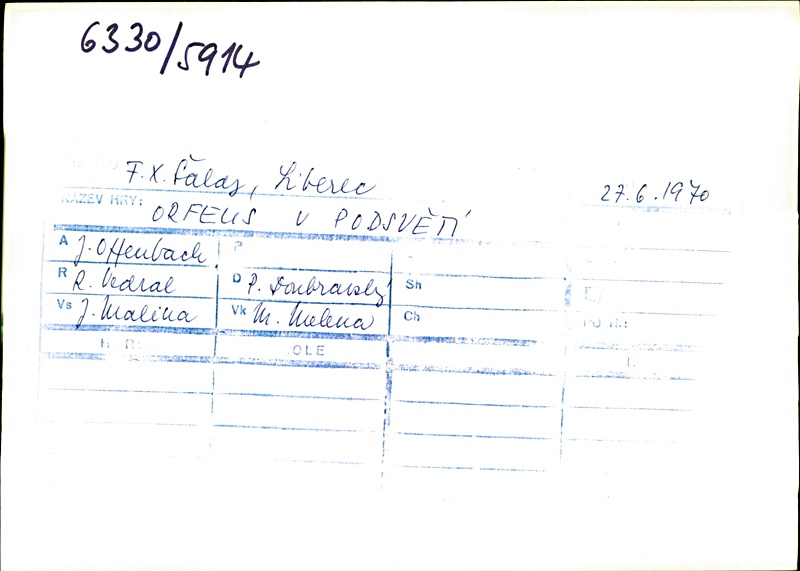 6330/5914
F.X. Šalda, Liberec 27.6.1970
NÁZEV HRY:
ORFEUS V PODSVĚTÍ
A J. Offenbach P
R R. Vedral D P. Doubravský Sh
Vs J. Malina Vk M. Melena Ch
OLE